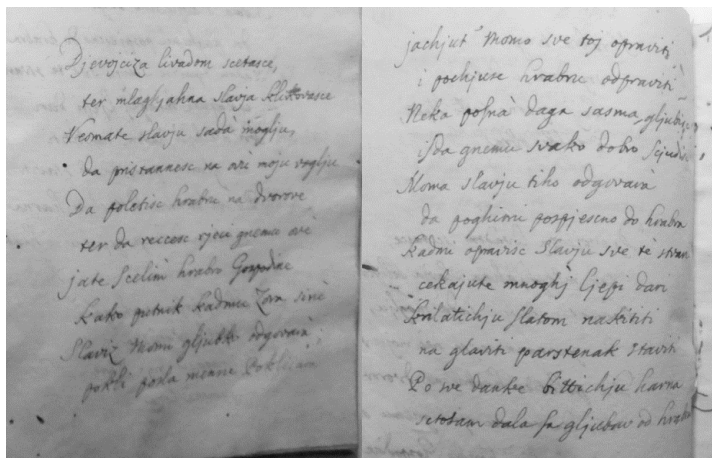 Djevojciza livadom scetasce,
ter mlagljahna slavja klikovasce
Vesmate slavju sada moglju,
da pristannesc na ovu moju voglju
Da poletisc hrabru na dvorove
ter da reccesc rjeci gnemu ove
jate scelim hrabro Gospodae
kako putnik kadmu Zora sine
Slaviz Momi gljubko odgovara
pokli posla menne
jachjut Momo sve toj opraviti
i pochjute hrabru odpraviti
Neka posna daga sasma gljubisc
isda gnemu svako dobro scjudisc
Moma slavju tiho odgovara
da poghine pospjescno do hrabra
kadmi opravisc slavju sve te stvari
cekajute mnoghi ljepi dari
krilatichju slatom nakititi
na glaviti parstenak staviti
Po sve danke bittichju harna
sctosam dala sa gljubav od hrabra